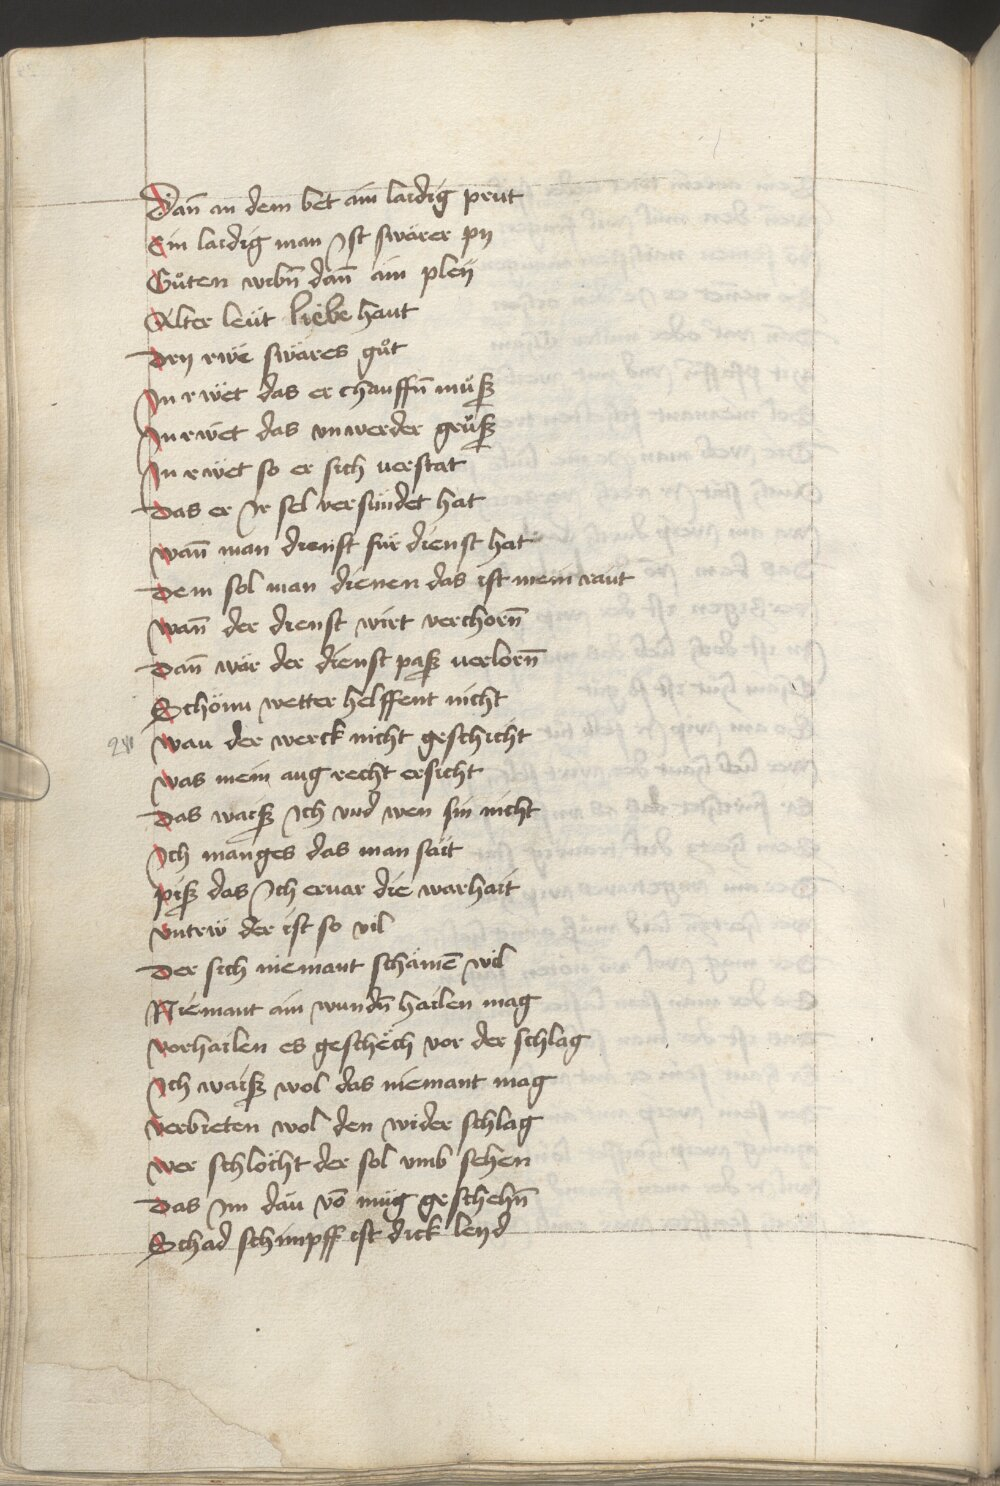 Dañ an dem bet ain laidig prút
Ein laidig man Ist swärer pÿ
Gůten wibñ dañ ain pleÿ
Alter leút liebe haut
Drÿ rwe swäres gůt
In rwet das er chauffñ můsz
In rwet das vnwerder grůsz
In rwet so er sich uerstat
Das er Ir sel versúndet hat
wañ man dienst fúr dienst hat
Dem sol man dienen das ist mein raut
wañ der dienst wirt verchorñ
Dañ wär der dienst pasz uerlorñ
Schönu wetter helffent nicht
wau der werck nicht geschicht
was mein aug recht ersicht
Das waisz Ich vnd wen sin nicht
Ich manges das man sait
pisz das Ich eruar die warhait
vntrw der ist so vil
Der sich niemant schämē wil
Niemant ain wundñ hailen mag
vorhailen es geschëch vor der schlag
Ich waisz wol das niemant mag
verbieten wol den wider schlag
wer schlöcht der sol vmb sehen
Das Im dau vō múg geschehñ
Schad schimpff ist dick leyd